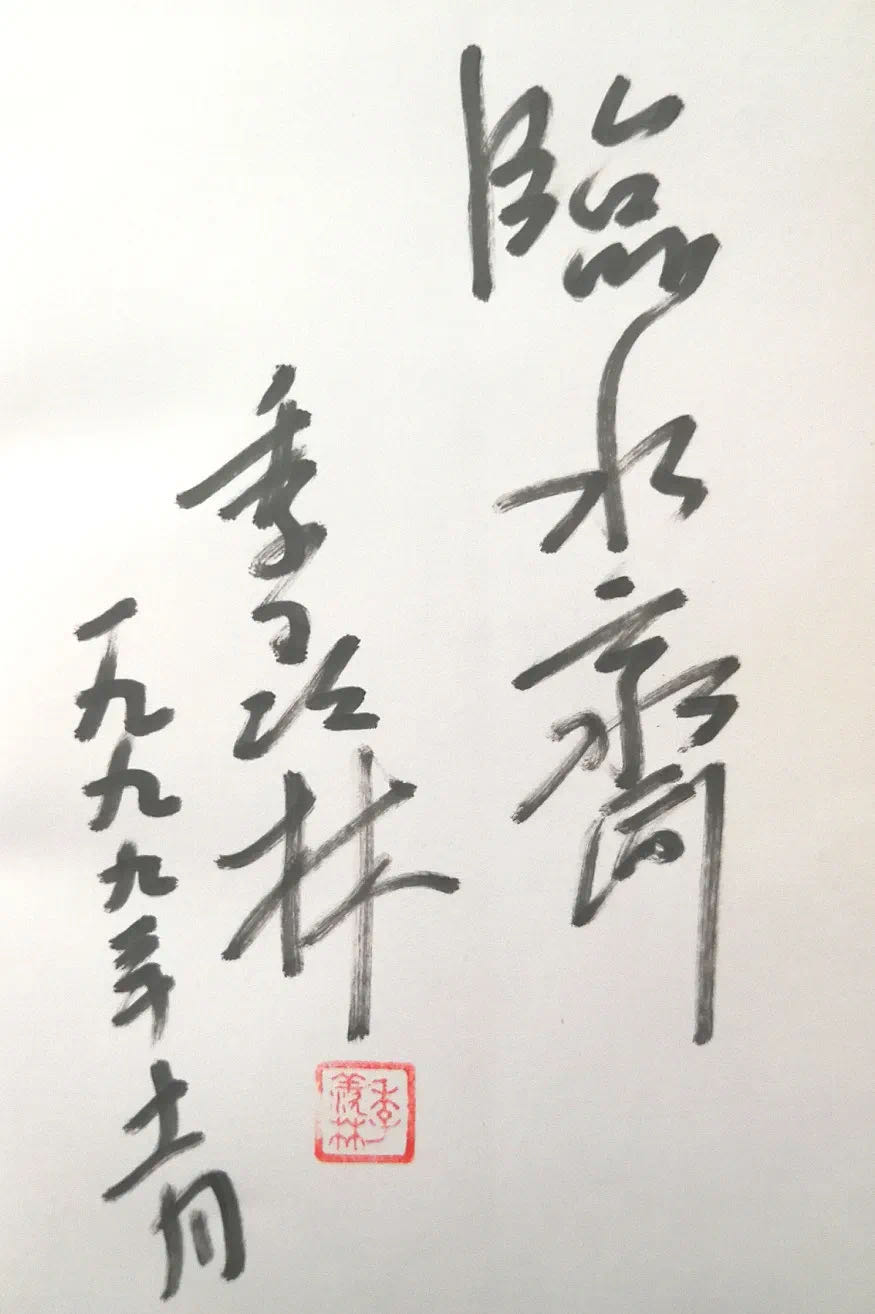 臨水齋
季羡林
一九九九年十一月
季羡林